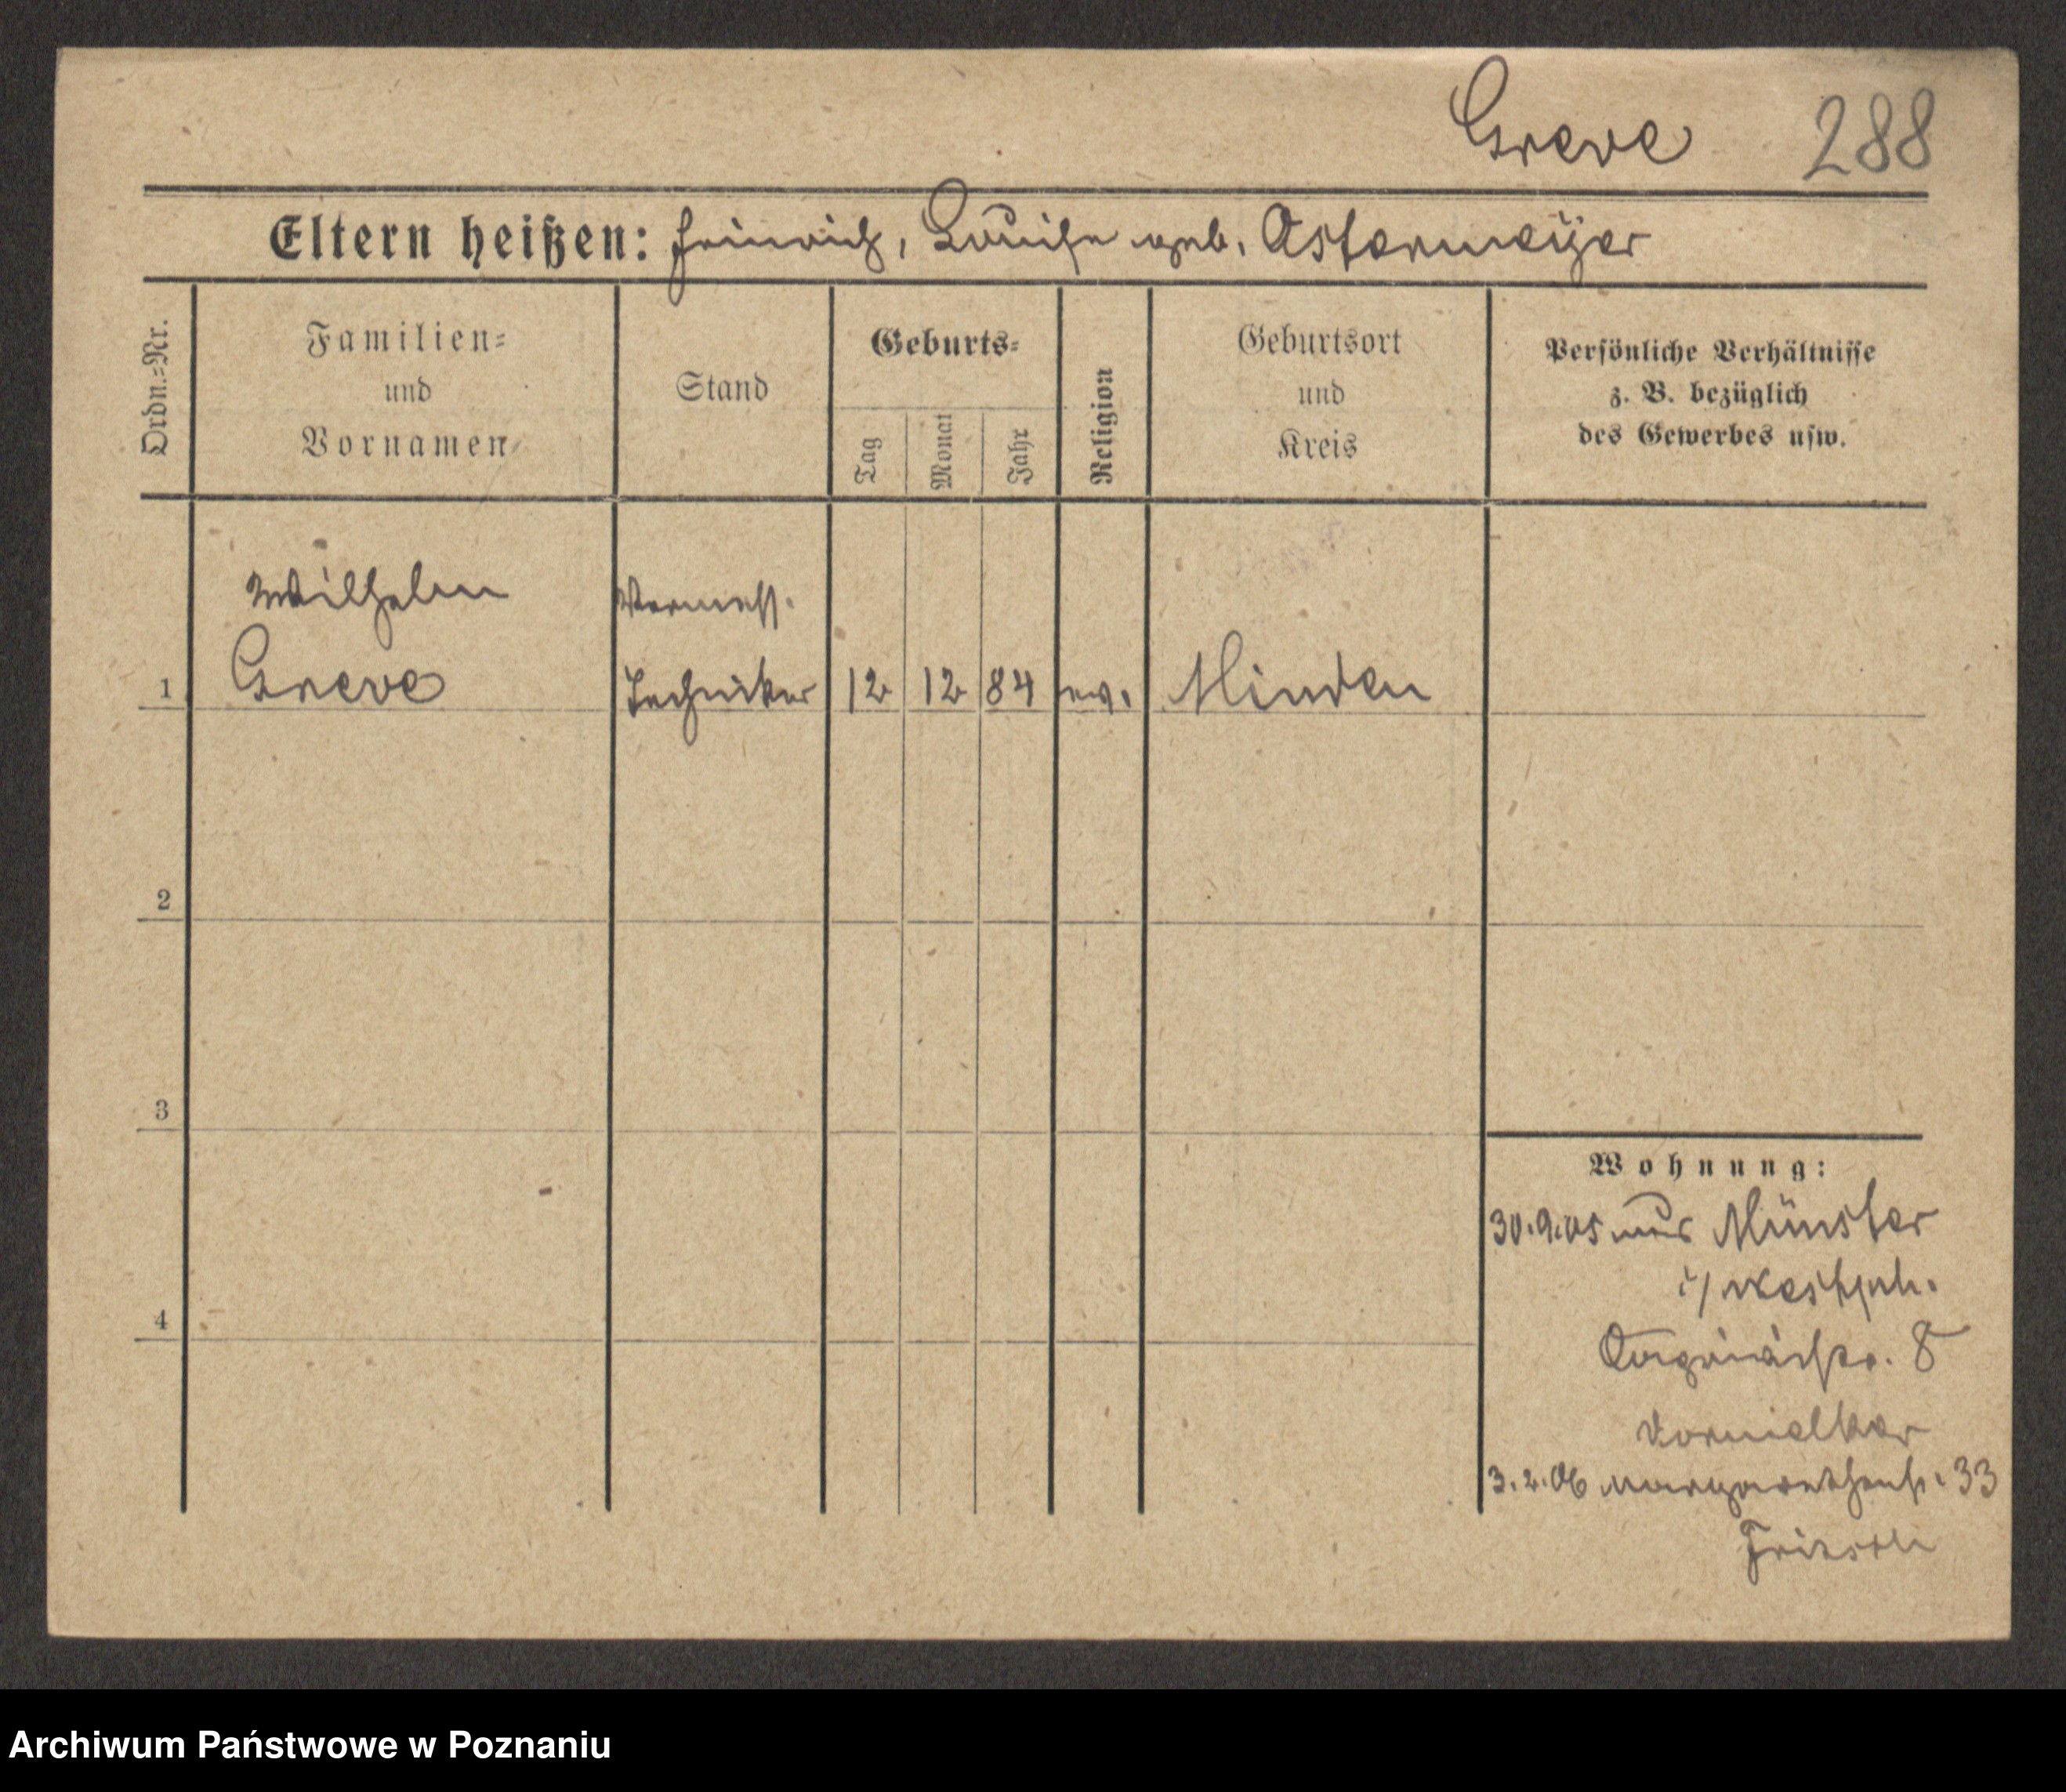 Greve 288
Eltern heißen: Heinrich, Louise geb. Ostermeyer
Ordn.-Nr.
Familien-
und
Vornamen
Stand
Geburts-
Tag
Monat
Jahr
Religion
Geburtsort
und
Kreis
Persönliche Verhältnisse
z. B. bezüglich
des Gewerbes usw.
Wilhelm Vermess.
1 Greve Techniker 12 12 84 ev. Minden
2
3
4
Wohnung:
30.9.05 aus Münster
i/Westph.
8
3.2.06 Margarethenst. 33
Archiwum Państwowe w Poznaniu